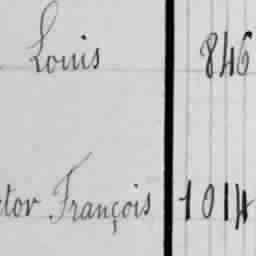 Louis 846
ctor François 1014